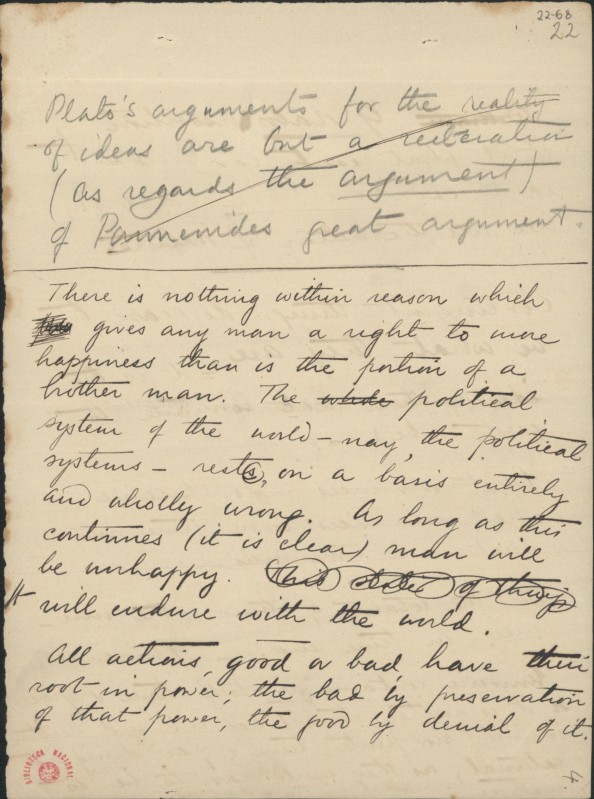 22-68
22
Plato's arguments for the reality
of ideas are but a reiteration
(as regards the argument)
of Parmenides great argument.
There is nothing within reason which
gives any man a right to more
happiness than is the portion of a
brother man. The whole political
system of the world – nay, the political
systems – rests, on a basis entirely
and wholly wrong. As long as this
continues (it is clear) man will
be unhappy. This state of things
It will endure with the world.
All actions, good or bad, have their
root in power; the bad by preservation
of that power, the good by denial of it.
BIBLIOTECA NACIONAL